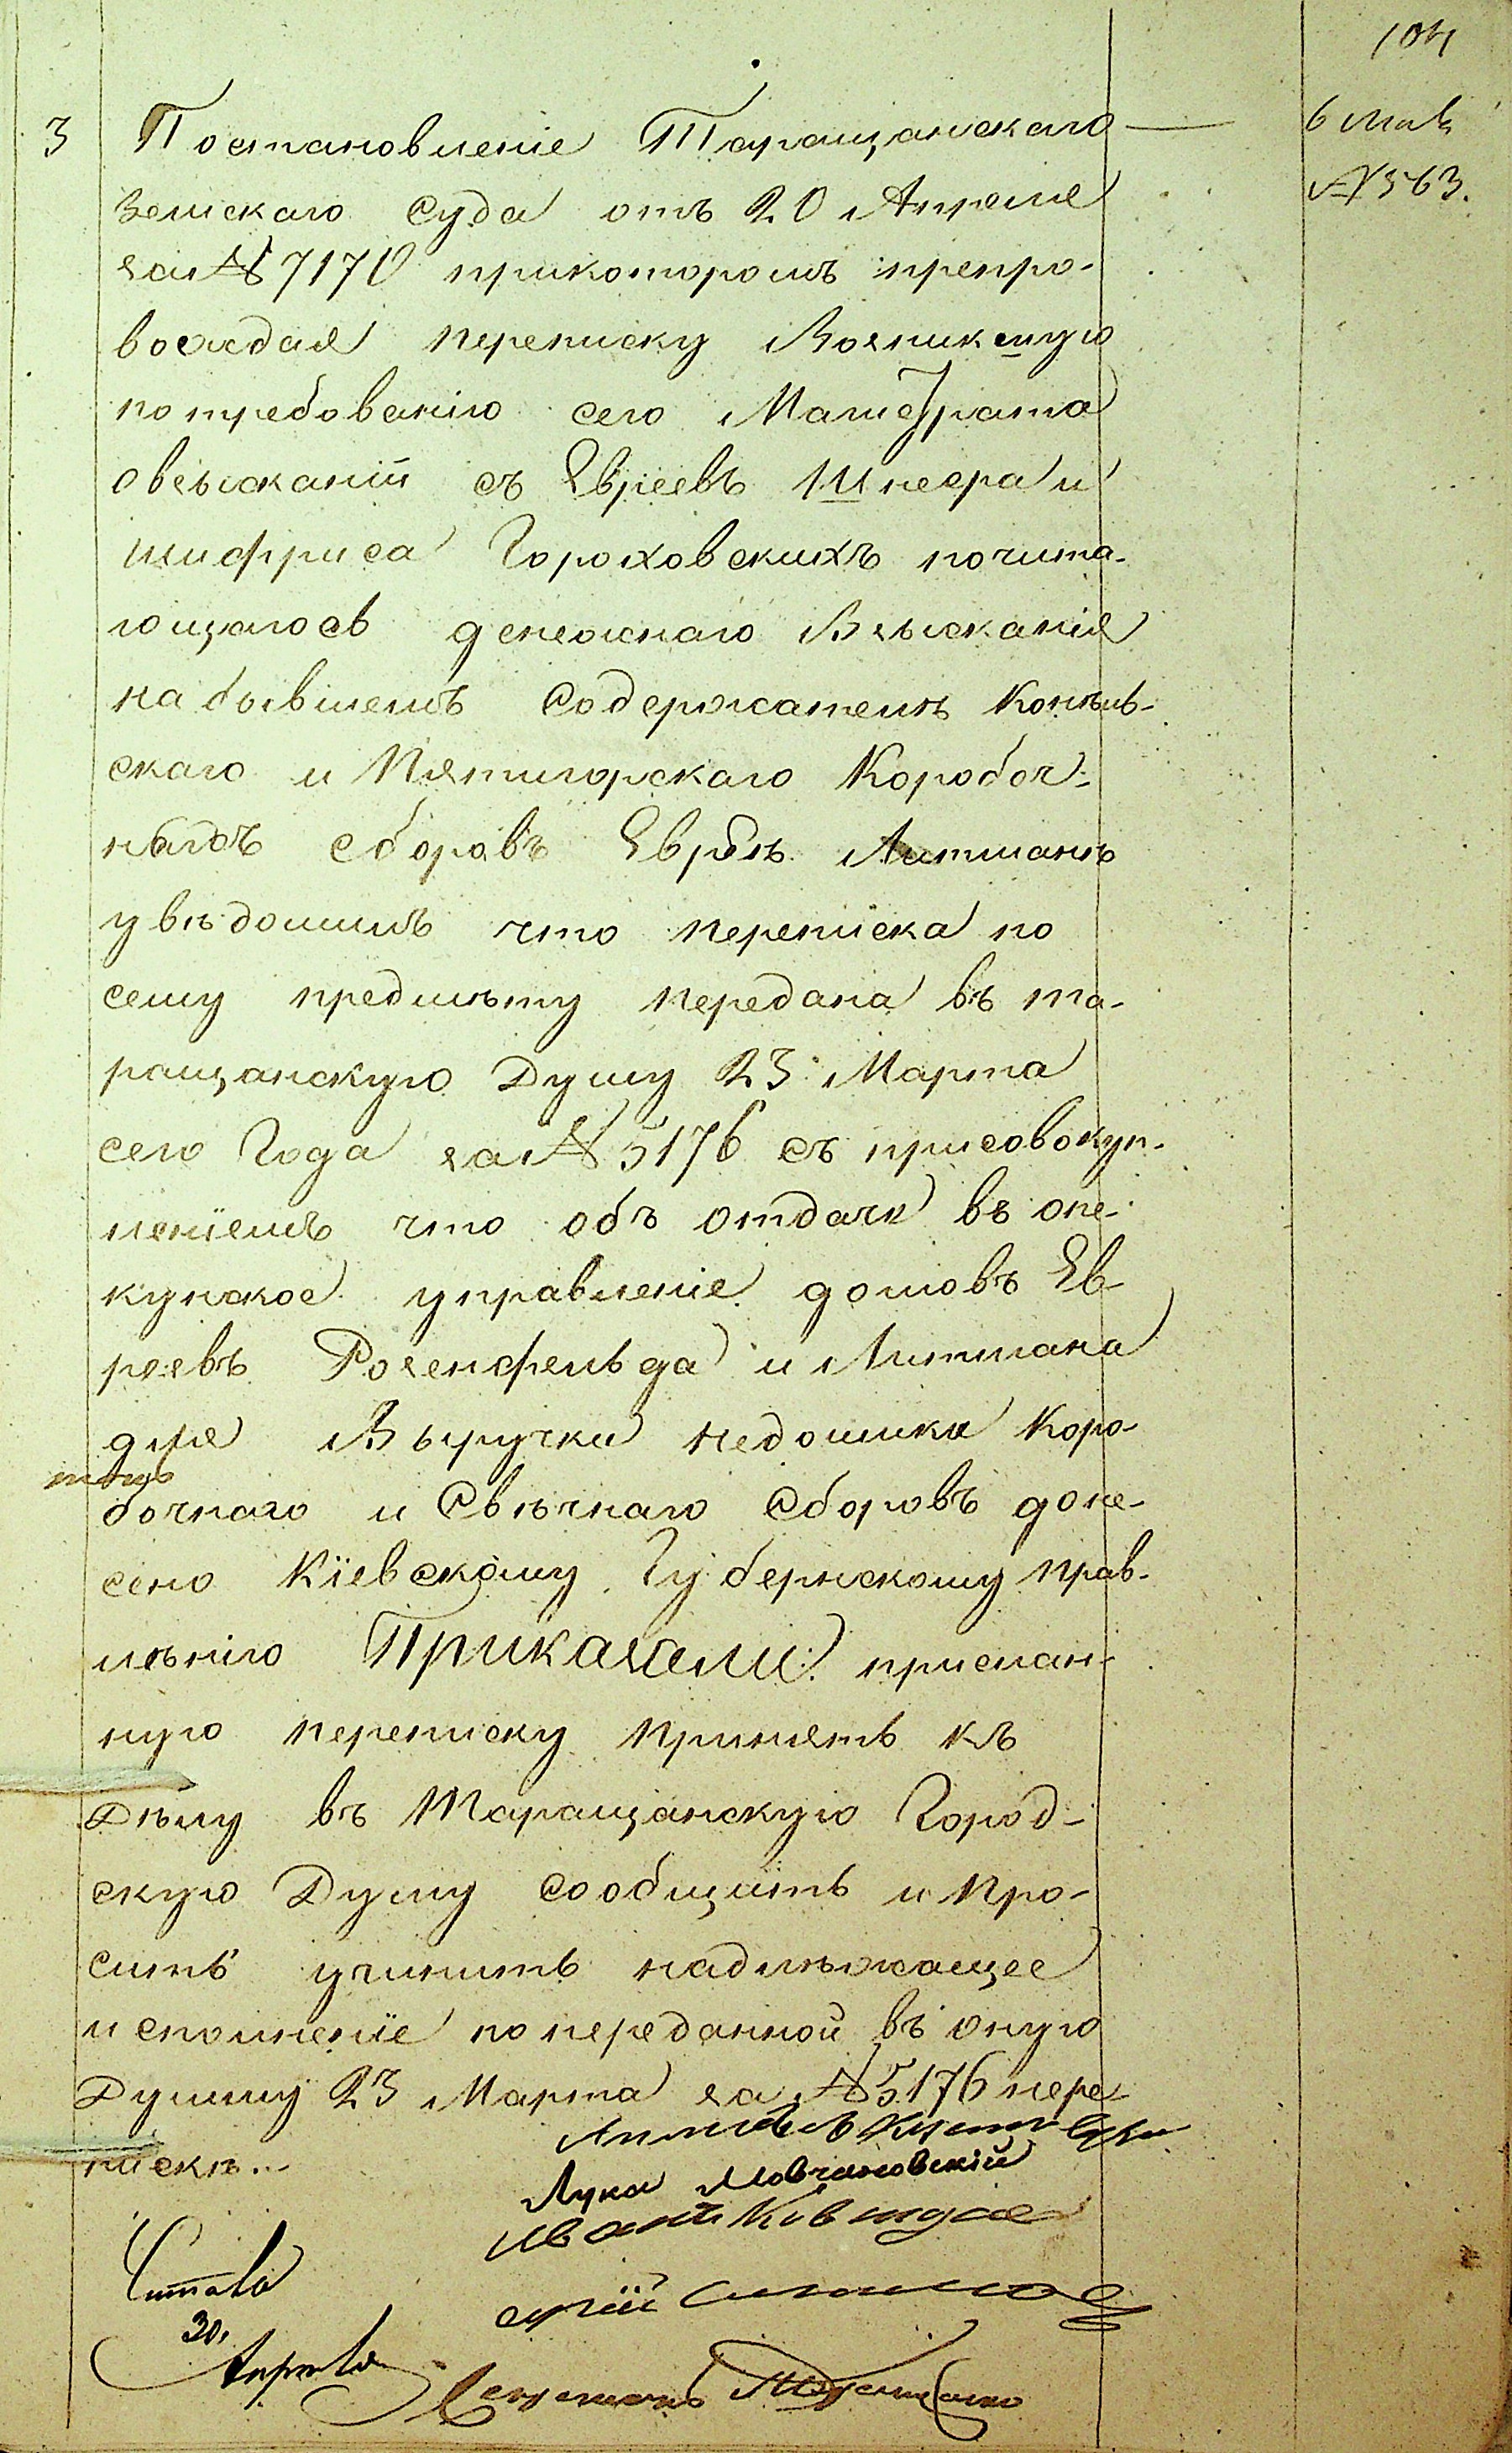 104
3 Постановленіе Таращанскаго — 6 Мая
Земскаго Суда отъ 20 Апреля №563.
за № 7170 прикоторомъ препро-
вождая переписку Возникшую
потребованію сего Магистрата
овзысканіи съ Евреевъ Шнеера и
Шифриса Гороховскихъ почита-
ющагось денежнаго Взысканія
на бывшемъ Содержателѣ Конѣль-
скаго и Пятигорскаго Коробоч-
ныхъ сборовъ Евреѣ Литманѣ
увѣдомилъ что переписка по
сему предмѣту передана въ та-
ращанскую Думу 23 Марта
сего Года за № 5176 съ присовокуп-
леніемъ что объ отдачи въ опе-
кунское управленіе домовъ Ев-
реевъ Розенфельда и Литмана
для Выручки недоимки Коро-
бочнаго и Свѣчнаго Сборовъ доне-
сено Кіевскому Губернскому Прав-
лѣнію Приказали: прислан-
ную переписку Принять къ
Дѣлу въ Таращанскую Город-
скую Думу сообщить и Про-
сить учинить надлѣжащее
исполненіе по переданной въ оную
Думму 23 Марта за № 5176 пере-
пискѣ..
Лука Мовчановскій
Иванъ
Читалъ
30.
Апреля